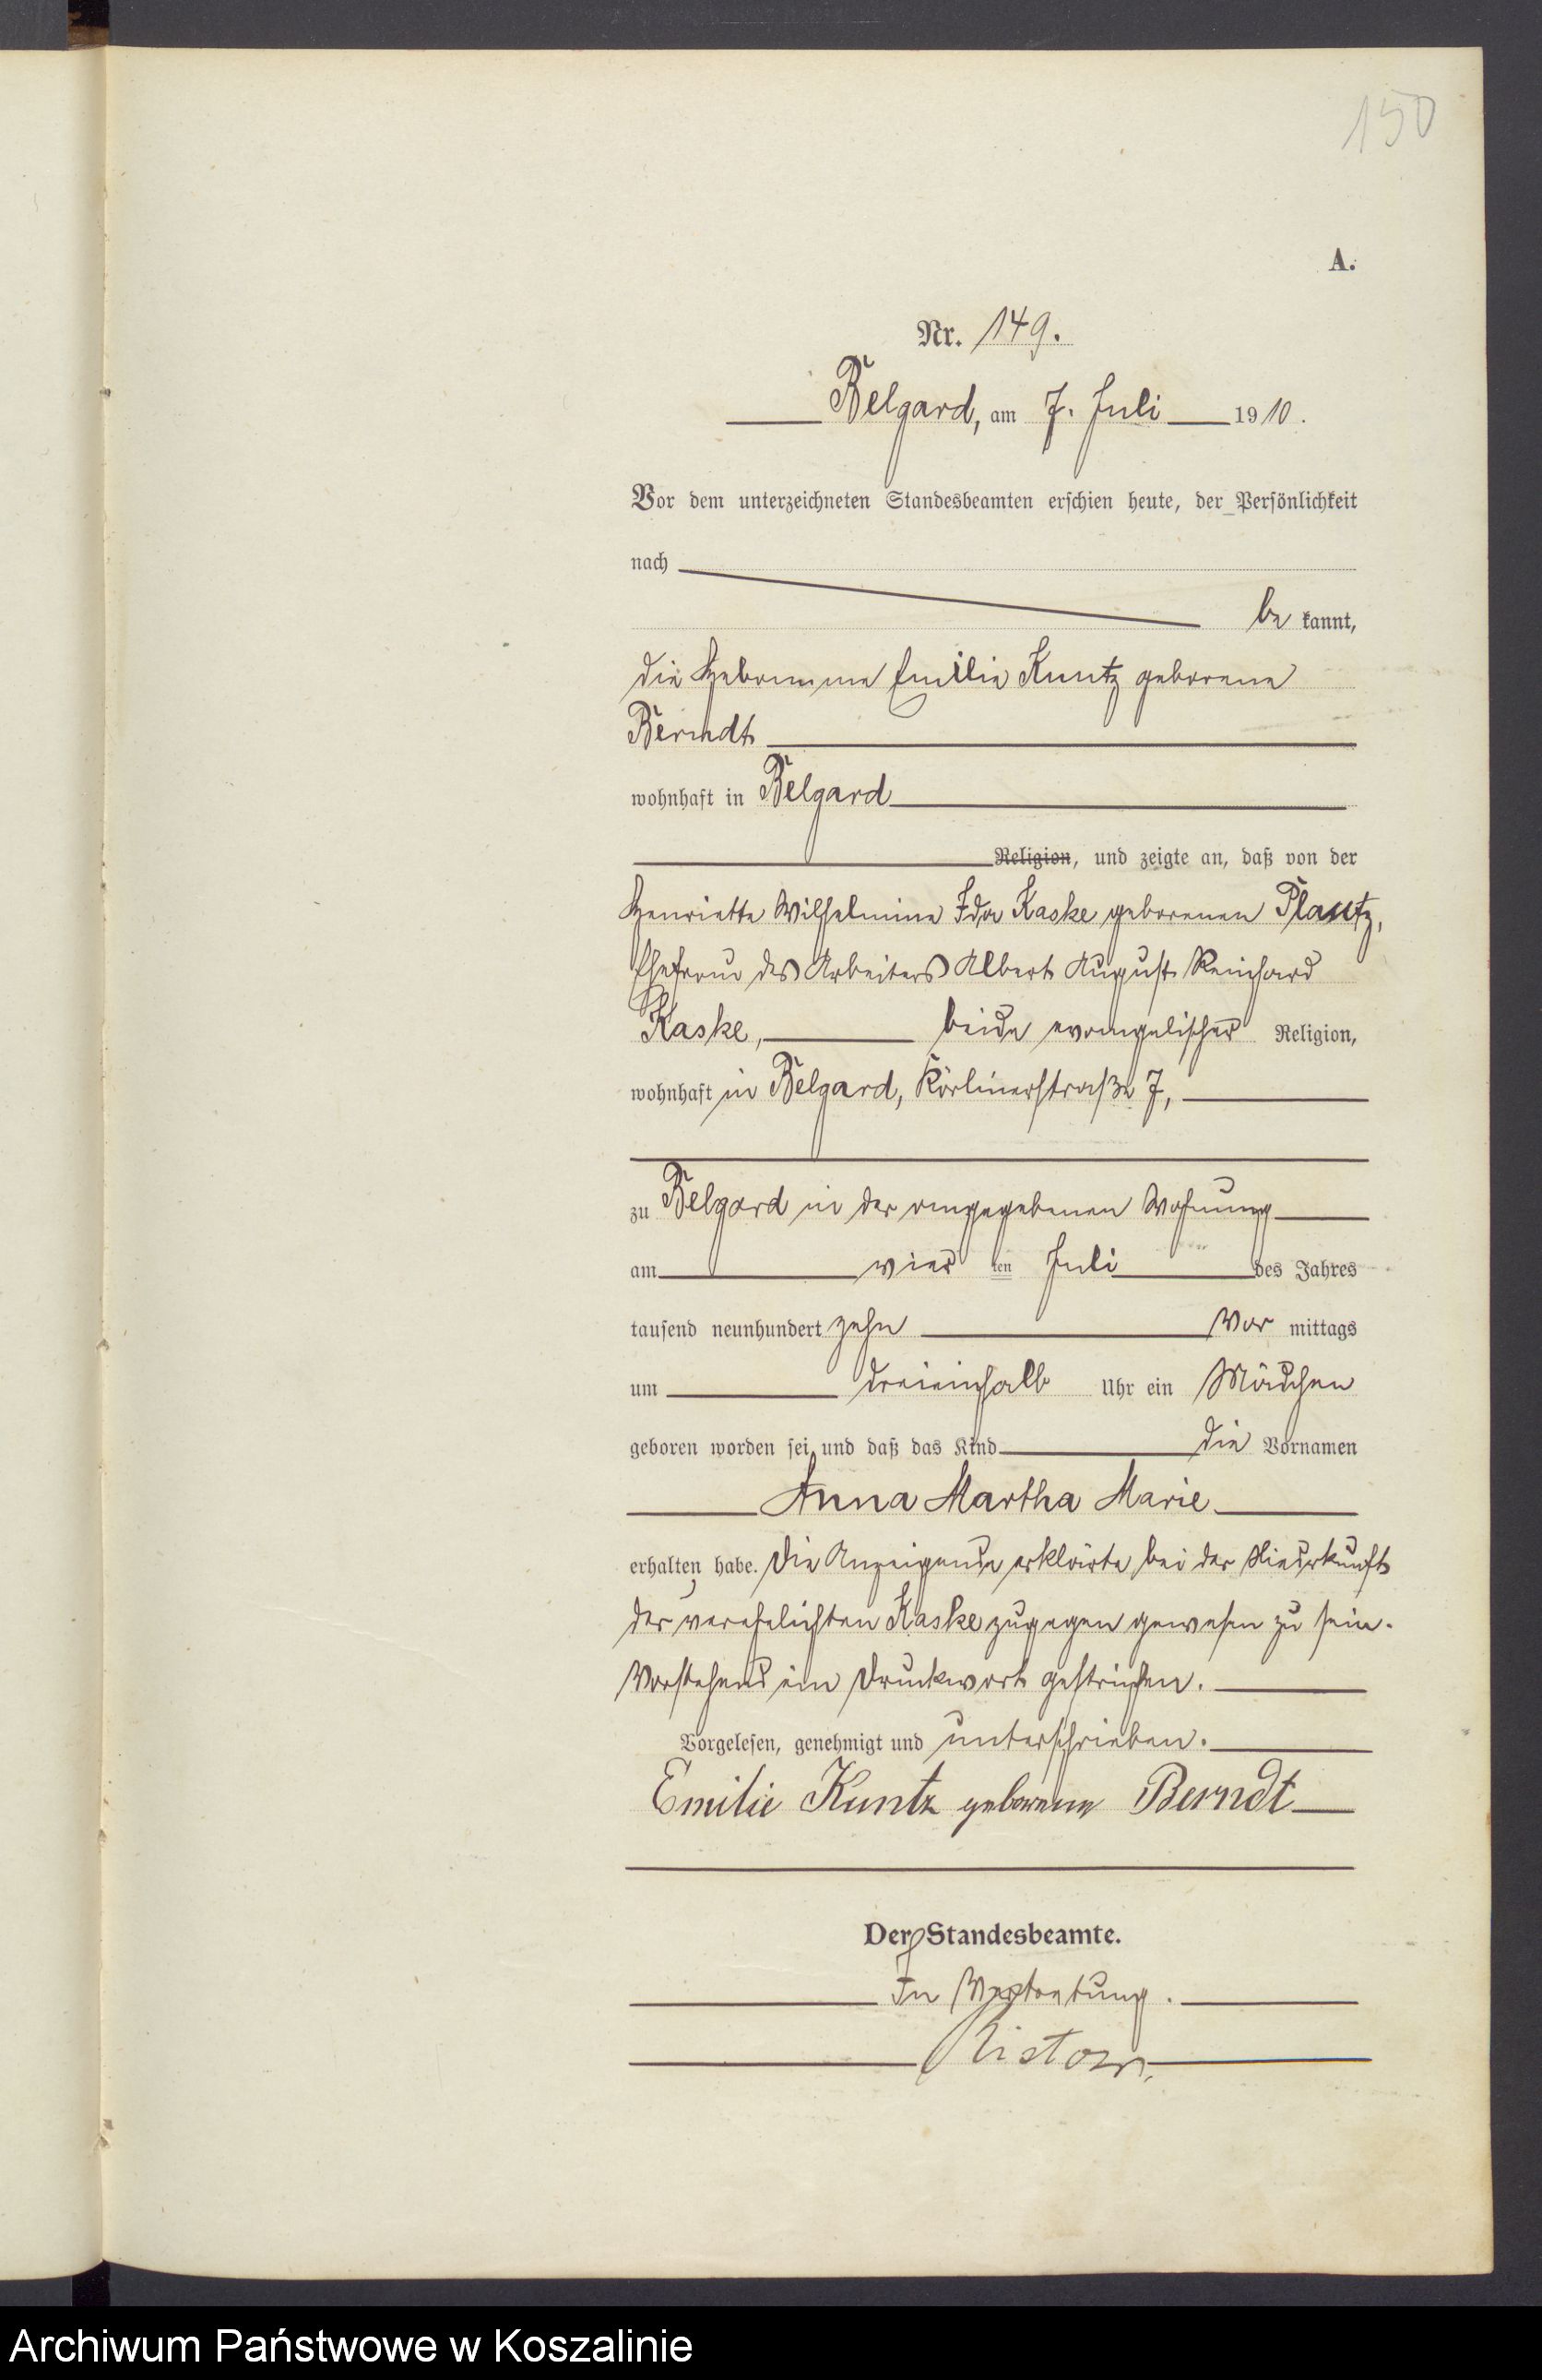 150
A.
Nr. 149.
Belgard, am 7. Juli 1910.
Vor dem unterzeichneten Standesbeamten erschien heute, der Persönlichkeit
nach
be kannt,
die Hebamme Emilie Kuntz geborene
Berndt
wohnhaft in Belgard
Religion, und zeigte an, daß von der
Henriette Wilhelmine Ida Kaske geborenen Plautz,
Ehefrau des Arbeiters Albert August Reinhard
Kaske, beide evangelischer Religion,
wohnhaft in Belgard, Körlinerstraße 7,
zu Belgard in der angegebenen Wohnung
am vier ten Juli des Jahres
tausend neunhundert zehn Vor mittags
um dreieinhalb Uhr ein Mädchen
geboren worden sei und daß das Kind die Vornamen
Anna Martha Marie
erhalten habe. Die Anzeigende erklärte, bei der Niederkunft
der verehelichten Kaske zugegen gewesen zu sein.
Vorstehend ein Druckwort gestrichen.
Vorgelesen, genehmigt und unterschrieben.
Emilie Kuntz geborene Berndt
Der Standesbeamte.
In Vertretung.
Ristow.
Archiwum Państwowe w Koszalinie